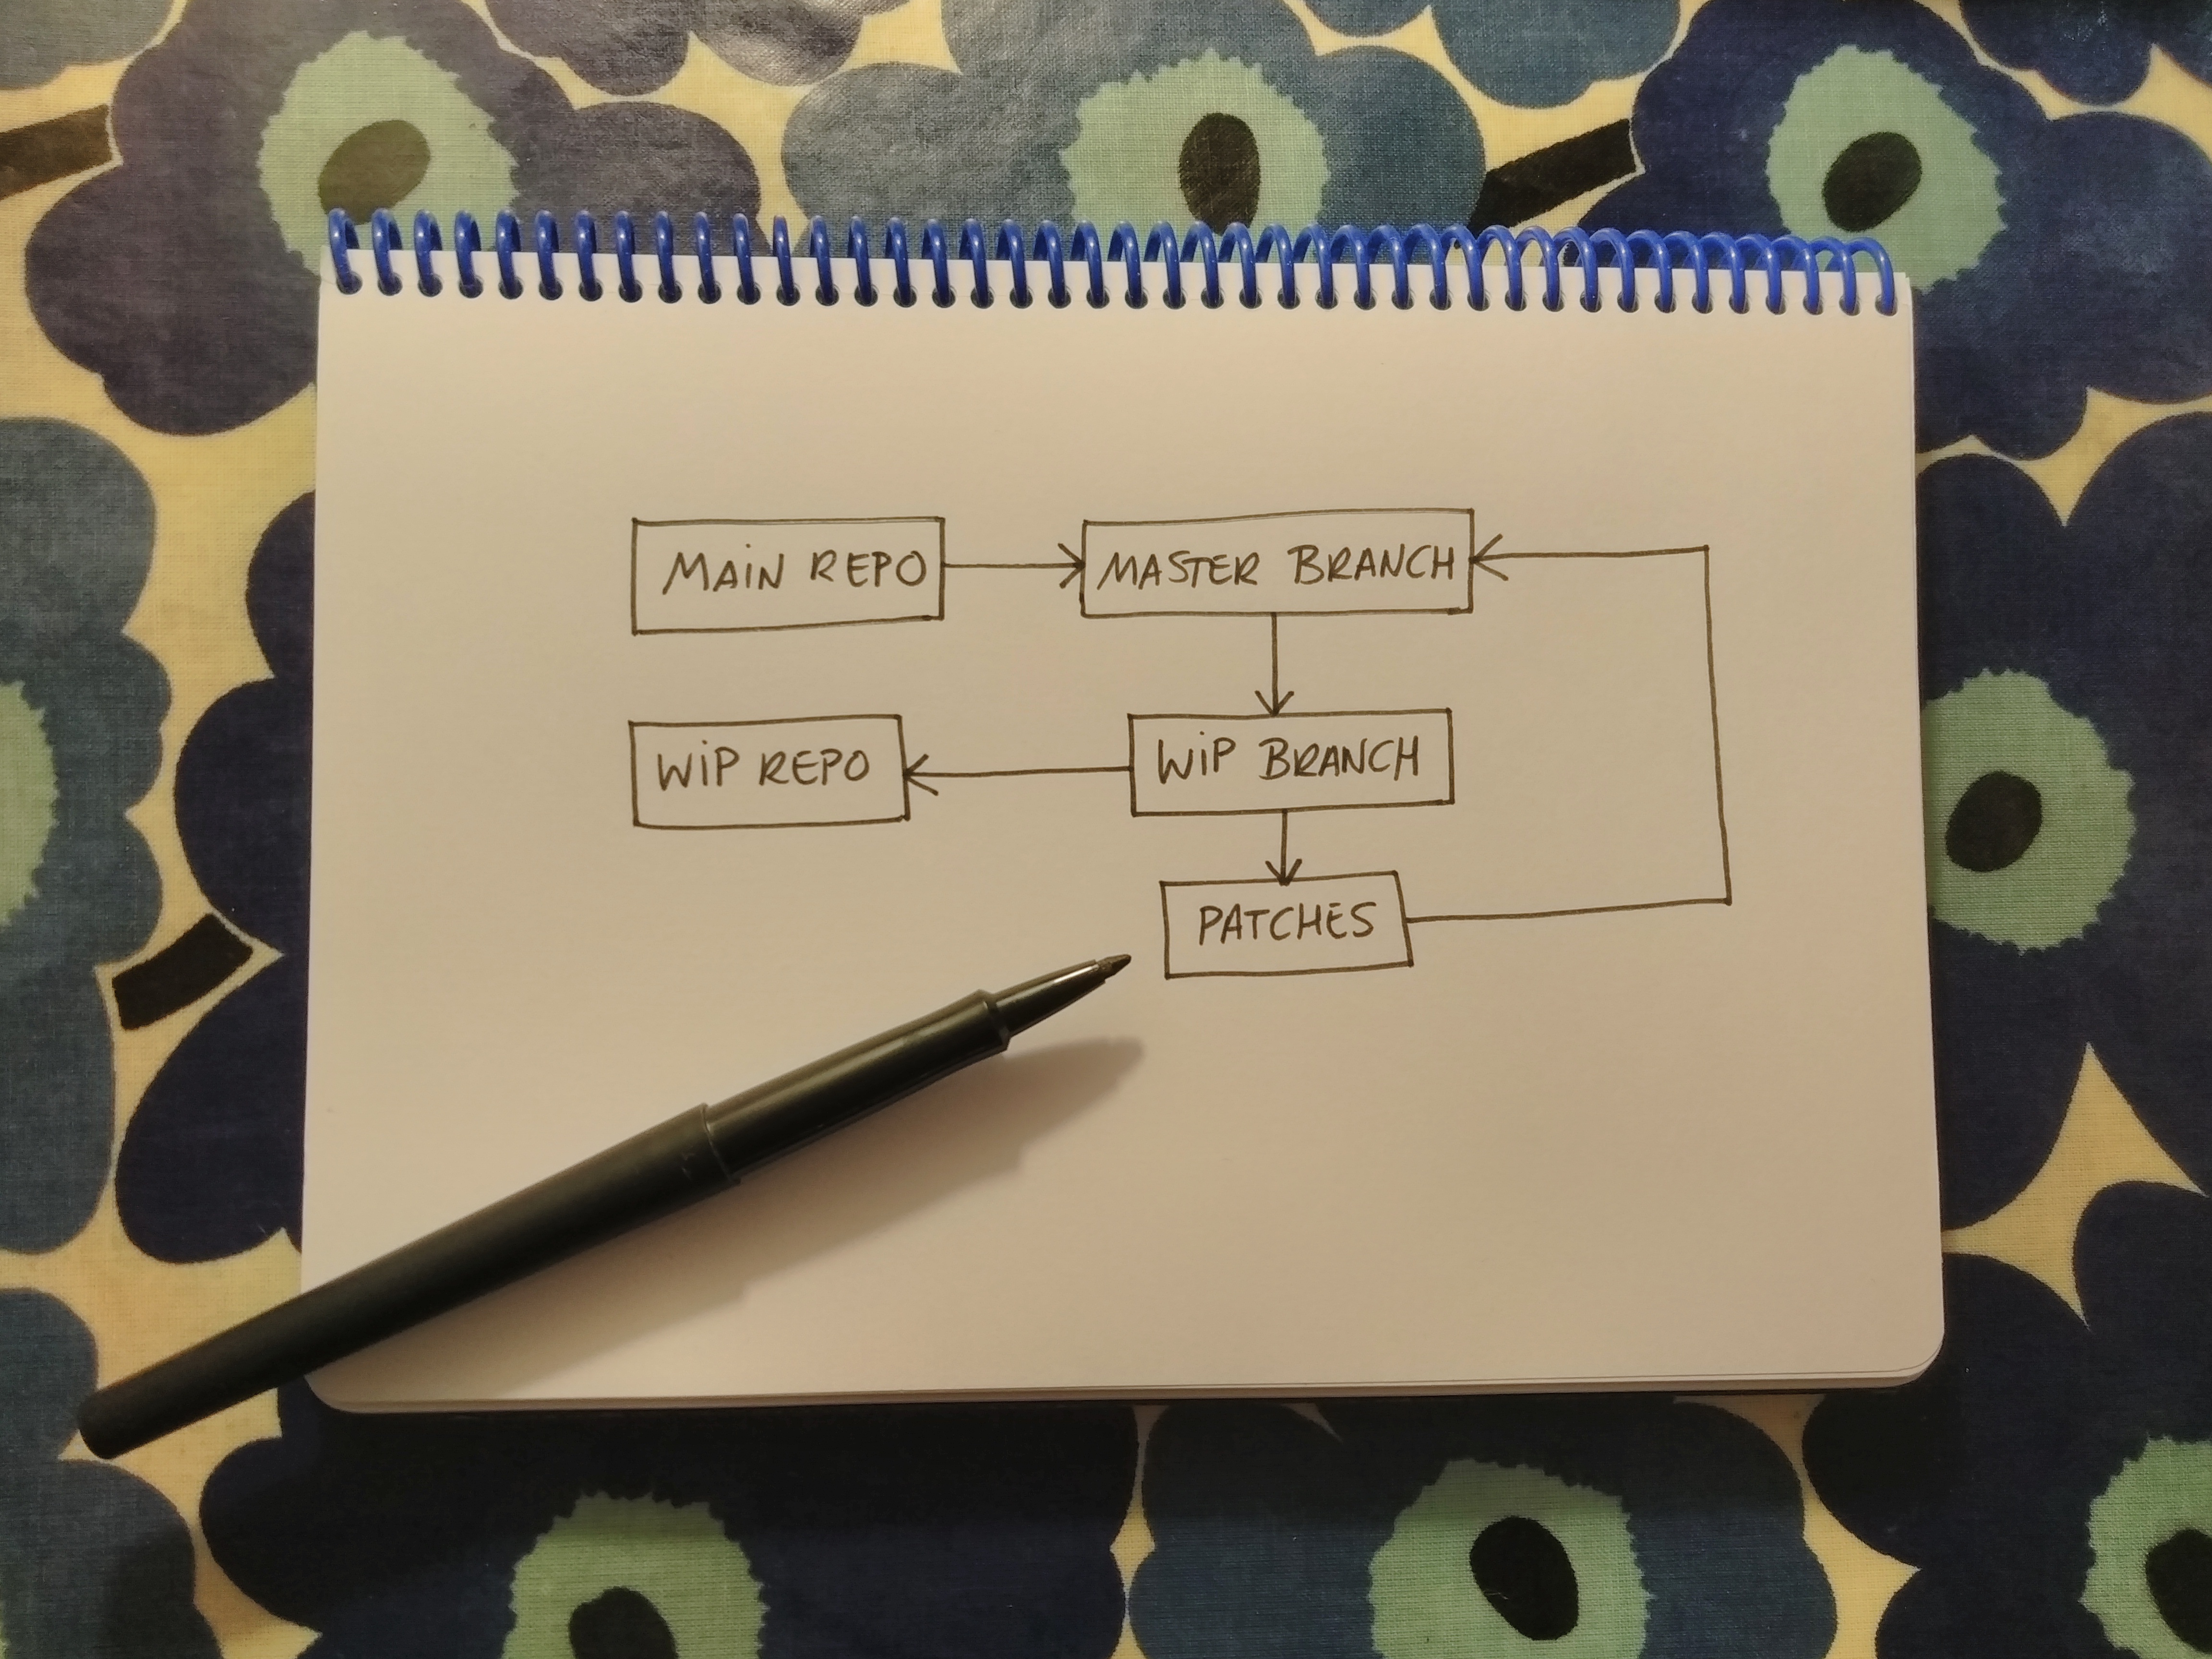 MAIN REPO
MASTER BRANCH
WIP REPO
WIP BRANCH
PATCHES